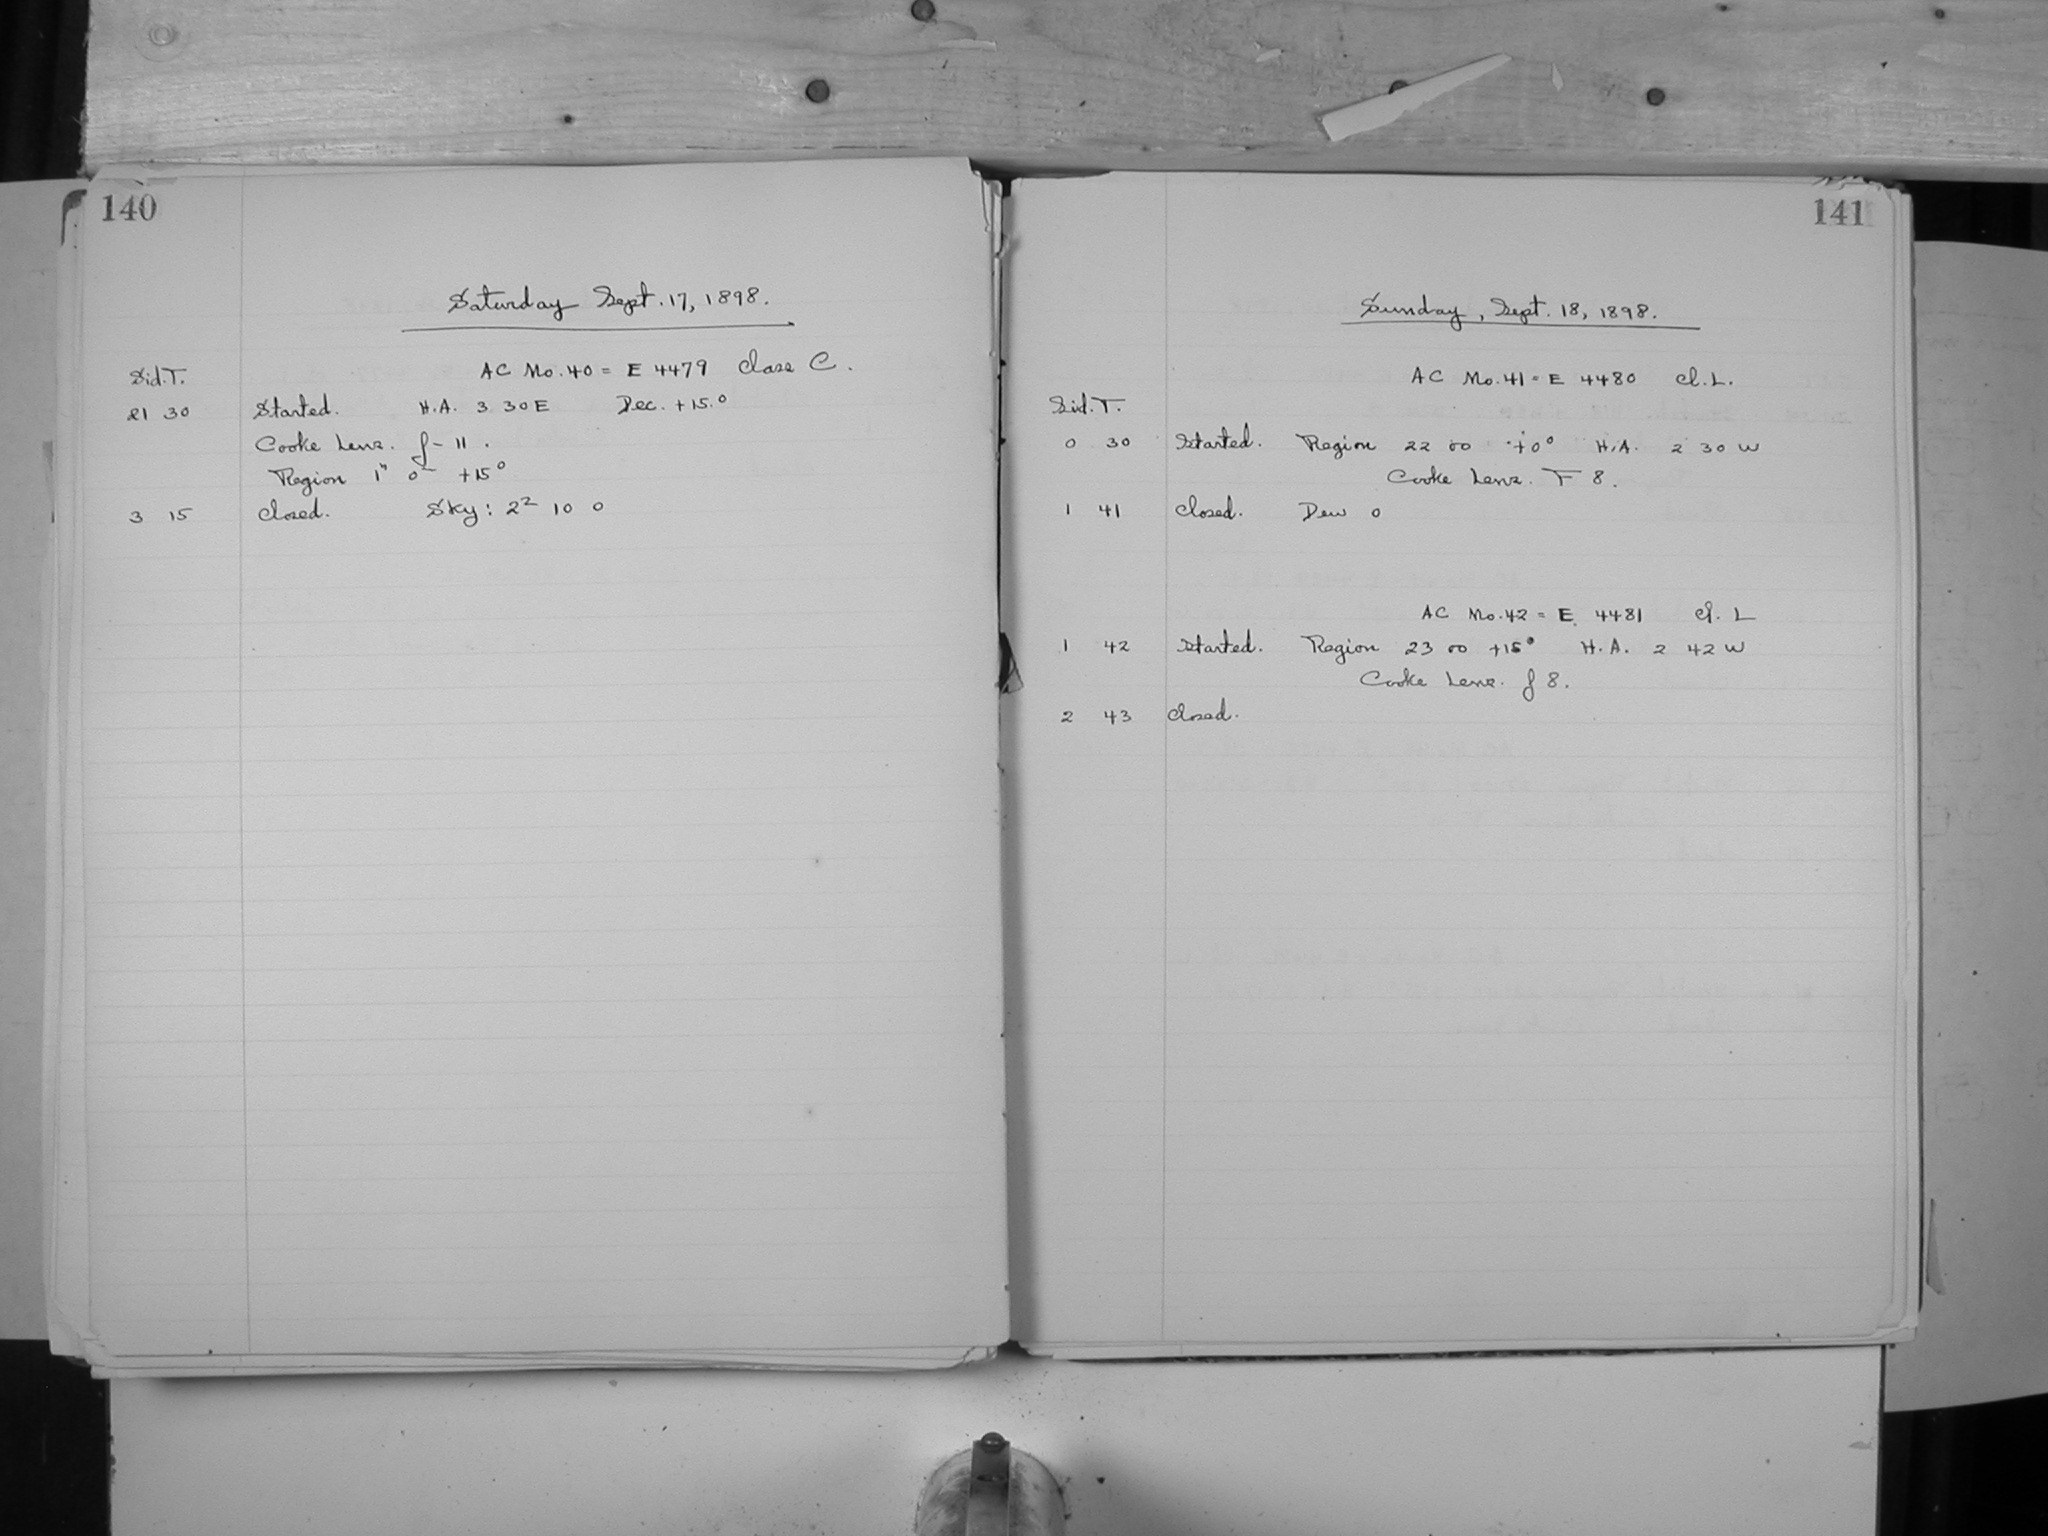 140
Saturday Sept. 17, 1898.
AC No. 40 = E 4479 Class C.
Sid. T.
21 30 Started. H.A. 3 30 E Dec. +15.°
Cooke Lens. f - 11.
Region 1ʰ 0ᵐ +15°
3 15 Closed. Sky: 2² 10 0
141
Sunday, Sept. 18, 1898.
AC No. 41 = E 4480 Cl. L.
Sid. T.
0 30 Started. Region 22 00 +0° H.A. 2 30 W
Cooke Lens. F 8.
1 41 Closed. Dew 0
AC No. 42 = E. 4481 Cl. L
1 42 Started. Region 23 00 +15° H.A. 2 42 W
Cooke Lens. f 8.
2 43 Closed.